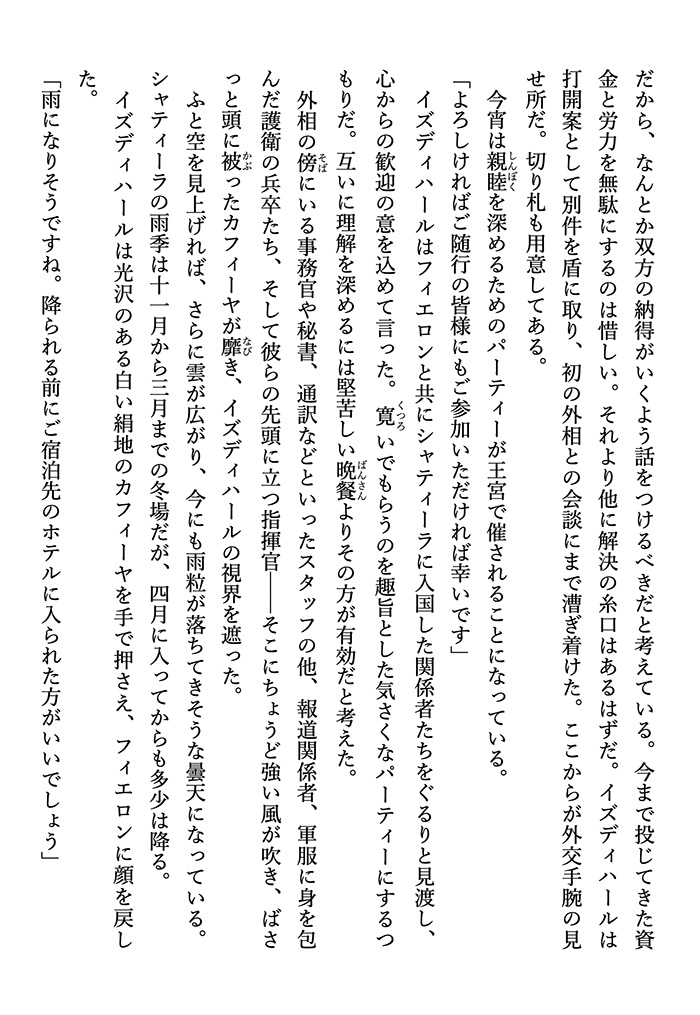 だから、なんとか双方の納得がいくよう話をつけるべきだと考えている。今まで投じてきた資
金と労力を無駄にするのは惜しい。それより他に解決の糸口はあるはずだ。イズディハールは
打開案として別件を盾に取り、初の外相との会談にまで漕ぎ着けた。ここからが外交手腕の見
せ所だ。切り札も用意してある。
　今宵は親睦を深めるためのパーティーが王宮で催されることになっている。
「よろしければご随行の皆様にもご参加いただければ幸いです」
　イズディハールはフィエロンと共にシャティーラに入国した関係者たちをぐるりと見渡し、
心からの歓迎の意を込めて言った。寛いでもらうのを趣旨とした気さくなパーティーにするつ
もりだ。互いに理解を深めるには堅苦しい晩餐よりその方が有効だと考えた。
　外相の傍にいる事務官や秘書、通訳などといったスタッフの他、報道関係者、軍服に身を包
んだ護衛の兵卒たち、そして彼らの先頭に立つ指揮官――そこにちょうど強い風が吹き、ばさ
っと頭に被ったカフィーヤが靡き、イズディハールの視界を遮った。
　ふと空を見上げれば、さらに雲が広がり、今にも雨粒が落ちてきそうな曇天になっている。
シャティーラの雨季は十一月から三月までの冬場だが、四月に入ってからも多少は降る。
　イズディハールは光沢のある白い絹地のカフィーヤを手で押さえ、フィエロンに顔を戻し
た。
「雨になりそうですね。降られる前にご宿泊先のホテルに入られた方がいいでしょう」